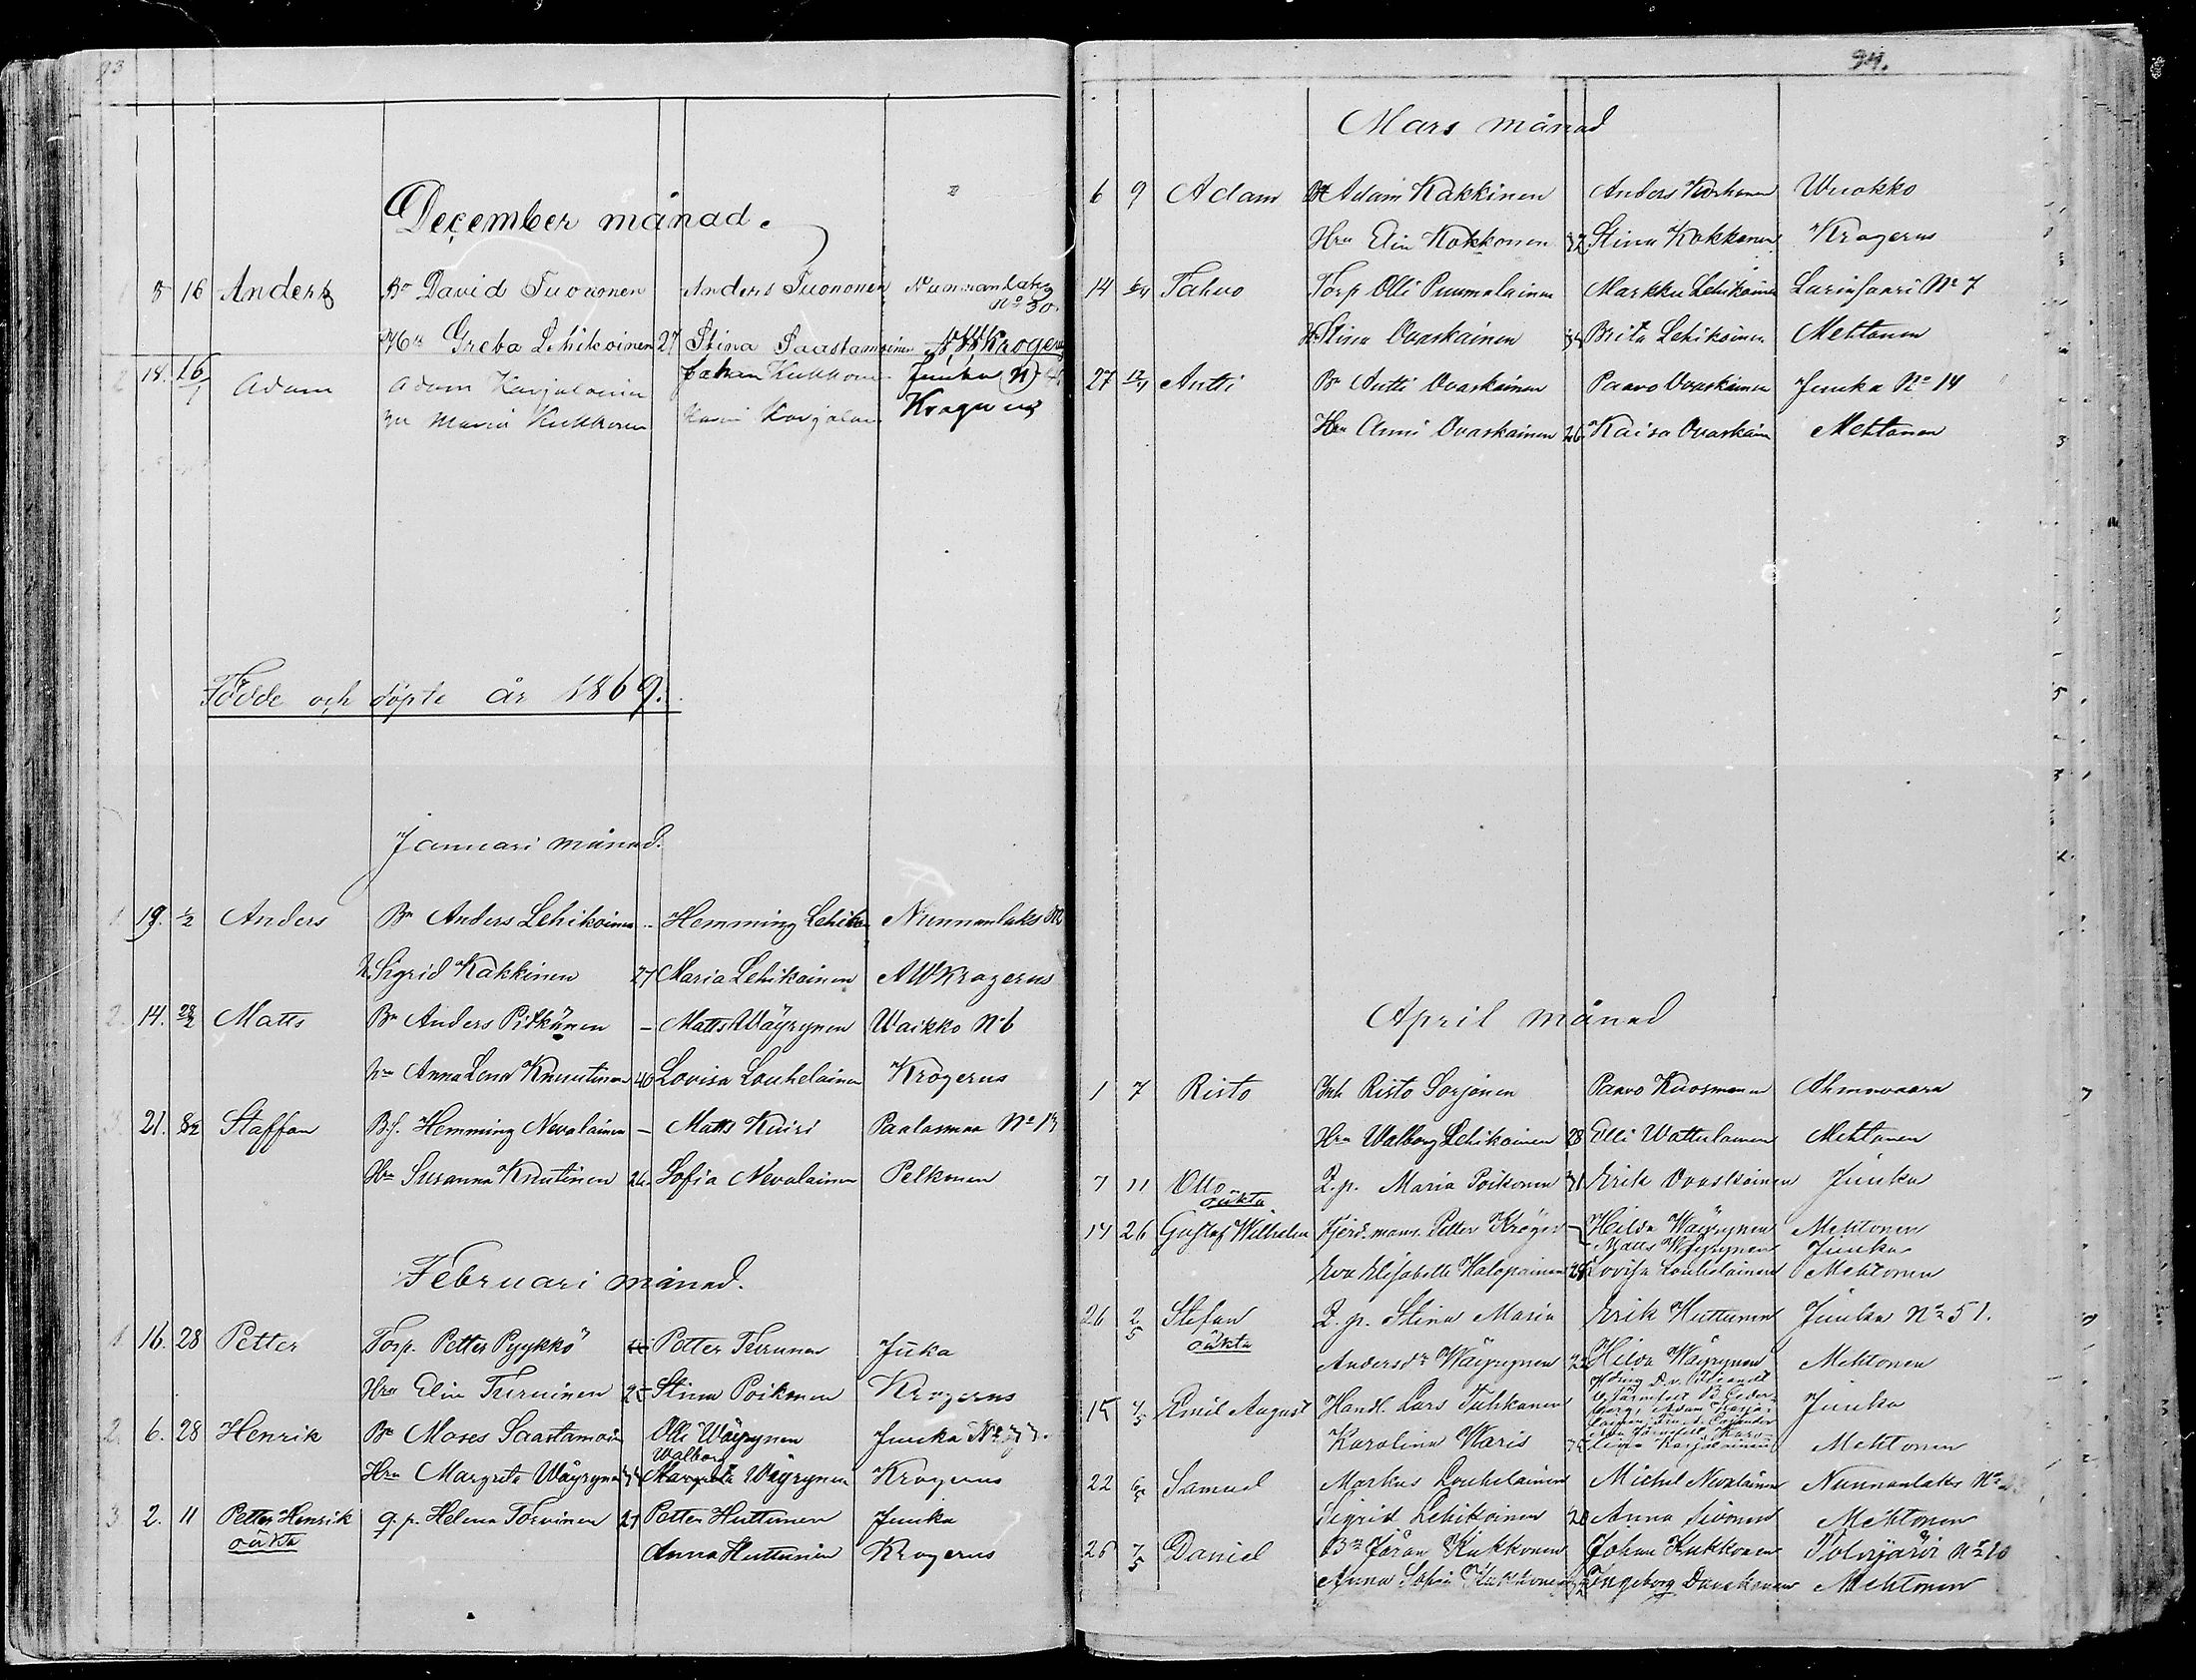 93
December månad.
8 16 Anders Bn David Tuononen Anders Tuononen Nunnanlaks No 30.
Hu Greta Lehikoinen 27 Stina Saastamoinen Krogerus
2 18. 16/1 Adam Adam Karjalainen Johan Kukkonen Juuka
Maria Kukkonen Krogerus
Födde och döpte år 1869.
Januari månad.
1. 19. 1/2 Anders Bn Anders Lehikoinen Hemming Lehik Nunnanlaks
h. Sigrid Kakkinen 27 Maria Lehikoinen AWKrogerus
2. 14. 28/2 Matts Bn Anders Pitkänen - Matts Wäyrynen Waikko No 6
hu Anna Lena Knuutinen 40 Lovisa Louhelainen Krogerus
3. 21. 8/2 Staffan B.f. Hemming Nevalainen - Matts Kuiri Paalasmaa No 13
Hu Susanna Knutinen 26. Sofia Nevalainen Pelkonen
Februari månad.
1 16. 28 Petter Torp. Petter Pyykkö Petter Turunen Juka
Hru Elin Turuinen 25 Stina Poikonen Krogerus
2. 6. 28 Henrik Bn Moses Saastamoin Olli Wäyrynen Juuka No
Walborg
Hru Margreta Wäyrynen Margreta Wäyrynen Krogerus
3. 2. 11 Petter Henrik q.p. Helena Torvinen 21 Petter Huttunen Juuka
oäkta Anna Huttunen Krogerus
94.
Mars månad
6 9 Adam Adam Kakkinen Anders Korhonen Wuokko
Hru Elin Kokkonen 32 Stina Kokkonen Krogerus
14 6/4 Tahvo Torp Olli Puumalainen Markku Lehikoinen Larinsaari No 7
Stina Ovaskainen 34 Brita Lehikoinen Mehtonen
27 12/4 Antti Bn Antti Ovaskainen Paavo Ovaskainen Juuka No 14
Hru Anni Ovaskainen 26 Kaisa Ovaskain Mehtonen
April månad
1 7 Risto Inh Risto Sorjonen Paavo Kuosmanen Ahmovaara
Hru Walborg Lehikoinen 28 Elli Wattulainen Mehtonen
7 11 Otto Q.p. Maria Poikonen 31 Erik Ovaskainen Juuka
oäkta
14 26 Gustaf Wilhelm Fjerd.man. Petter Kröger - Hilda Wäyrynen Mehtonen
Matts Wäyrynen Juuka
Eva Elisabeth Halopainen 28 Lovisa Louhelainen Mehtonen
26 2/5 Stefan Q.p. Stina Maria Erik Huttunen Juuka No 51.
oäkta
Andersdr Wäyrynen 22 Hilda Wäyrynen Mehtonen
15 4/5 Emil August Handl. Lars Tuhkanen Juuka
Karolina Waris Mehtonen
22 6/5 Samuel Markus Louhelainen Michel Nevalainen Nunnanlaks No
Sigrid Lehikoinen 20 Anna Sivonen Mehtonen
26 7/5 Daniel Bn Jöran Kukkonen Johan Kukkonen Polvijärvi No 10
Anna Sofia Kukkonen Ingeborg Mehtonen